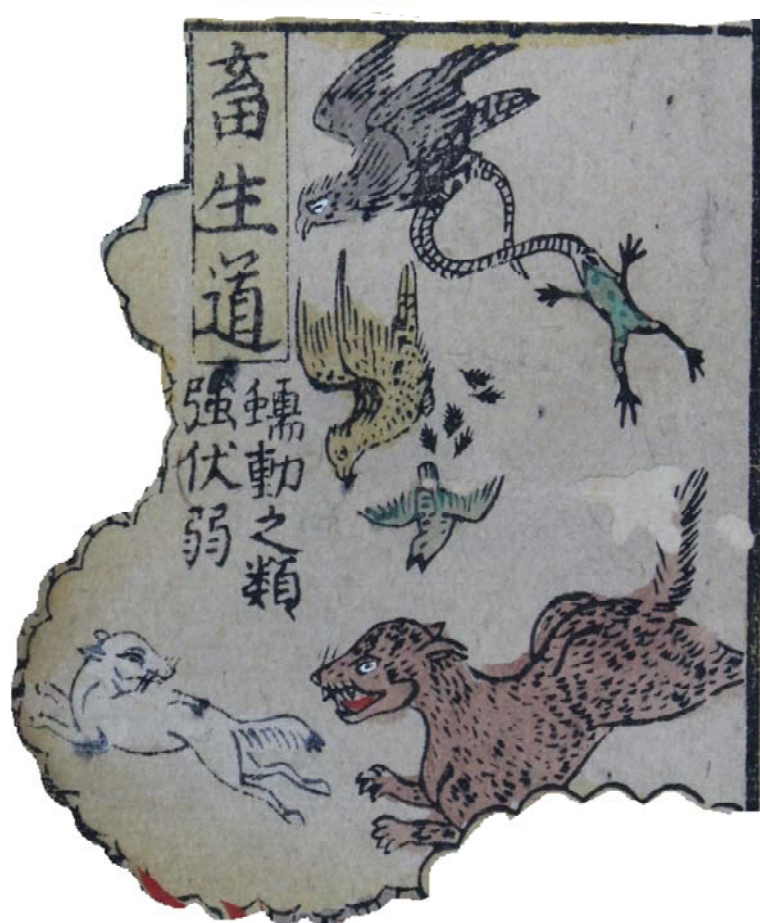 畜生道
蠕動之類
強伏弱